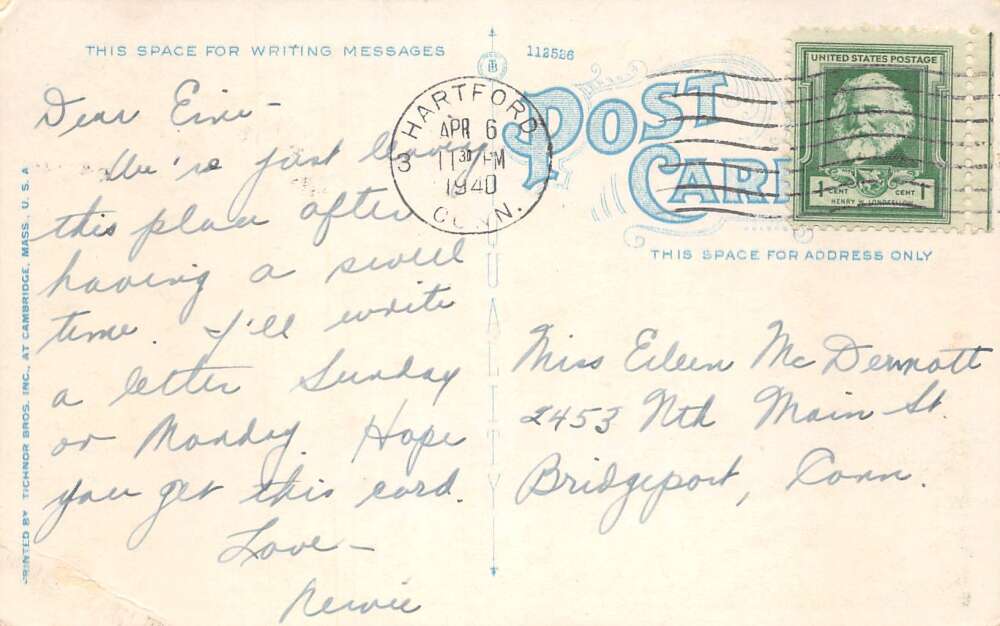 THIS SPACE FOR WRITING MESSAGES
112586
POST
CARD
THIS SPACE FOR ADDRESS ONLY
HARTFORD
APR 6
11 30 PM
1940
CONN.
3
UNITED STATES POSTAGE
1 CENT CENT 1
HENRY W. LONGFELLOW
Dear
We're just leaving
this place after
having a swell
time. I'll write
a letter Sunday
or Monday. Hope
you get this card.
Love —
QUALITY
Miss Eileen McDermott
2453 Nth Main St.
Bridgeport, Conn.
PRINTED BY TICHNOR BROS. INC., AT CAMBRIDGE, MASS., U. S. A